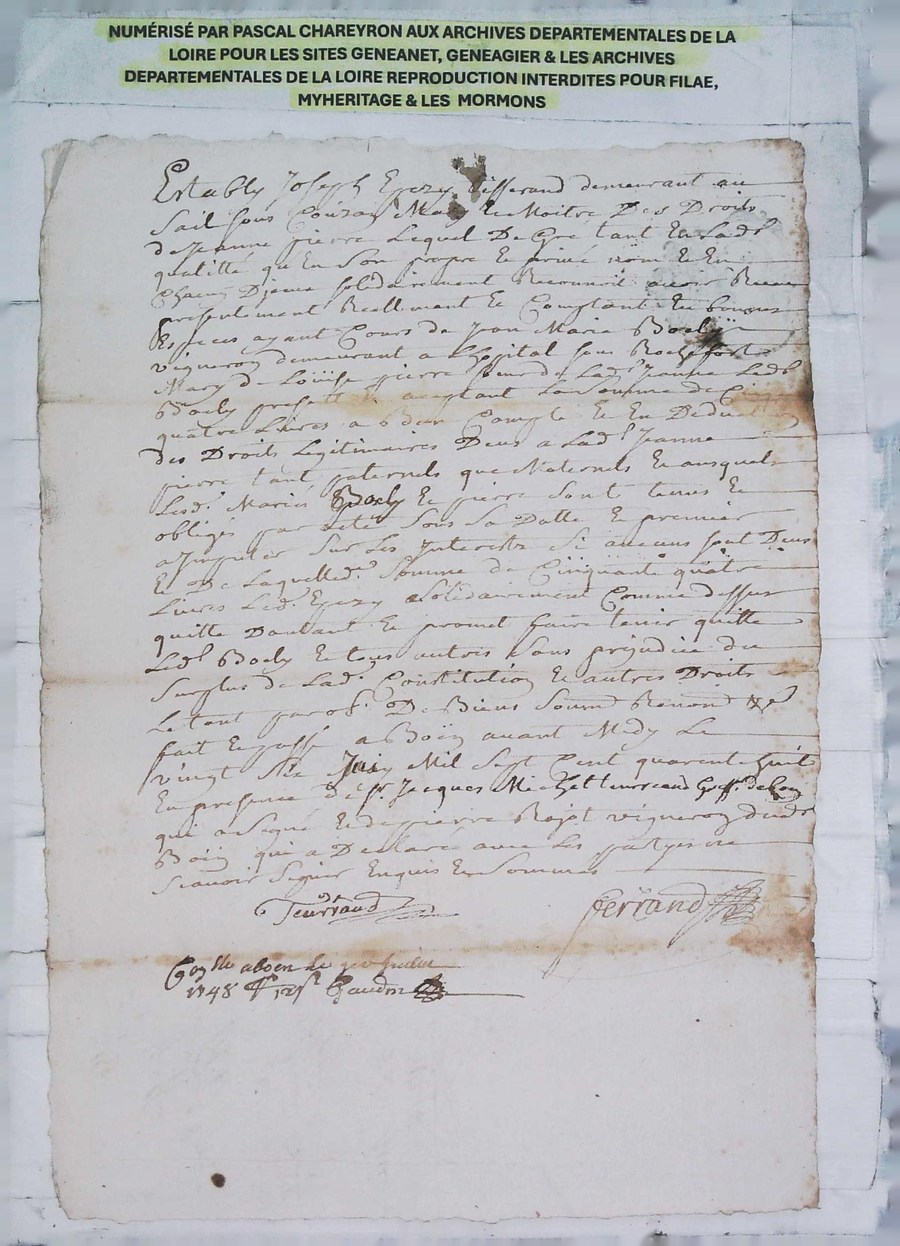 NUMÉRISÉ PAR PASCAL CHAREYRON AUX ARCHIVES DEPARTEMENTALES DE LA
LOIRE POUR LES SITES GENEANET, GENEAGIER & LES ARCHIVES
DEPARTEMENTALES DE LA LOIRE REPRODUCTION INTERDITES POUR FILAE,
MYHERITAGE & LES MORMONS
Estably Joseph Epezy Tisserand demeurant au
Sail sous Couzan Mary Le Moitre Des Droits
de Jeanne pierre Lequel De Gré tant En Lad.
qualitté qu'En Son propre Et privé nom Et En
Chacun D'jceux solidairement avoir Receu
presentement Reellement Et Comptant En bonnes
Especes ayant Cours de Jean Marie Boely
vigneron demeurant a Lhopital sous Rochefort
Mary de Loüise pierre Soeur de Lad. Jeanne Led.
Boely present acceptant La Somme de Cinq.te
quatre Livres a Bon Compte Et En Deduction
des Droits Legitimaires Deus a Lad. Jeanne
pierre tant paternels que Maternels Et ausquels
Lesd. Mariés Boely Et pierre Sont tenus Et
obligés par actes Sous Sa Datte Et premier
a Jmputer Sur Les Jnterests Si aucuns sont Deus
Et De Laquelle d. Somme de Cinquante quatre
Livres Led. Epezy Solidairement Comme dessus
quitte Dautant Et promet faire tenir quitte
Led. Boely Et tous autres Sans prejudice du
Surplus de Lad. Constitution Et autres Droits
Le tout par De Biens Soumd Renond &c
fait Et passé a Boën avant Midy Le
vingt Six Mil Sept Cent quarente huit
En presence de Sr. Jacques Michel Teurraud Greff. de Boen
qui a Signé Et de pierre Rojot vigneron dud.
Boën qui a Declaré avec Les partyes ne
Scavoir Signer Enquis Et Sommés
Teurraud
ferrand
Con.lle a boen Le
1748 R. 12 s. Gaudin